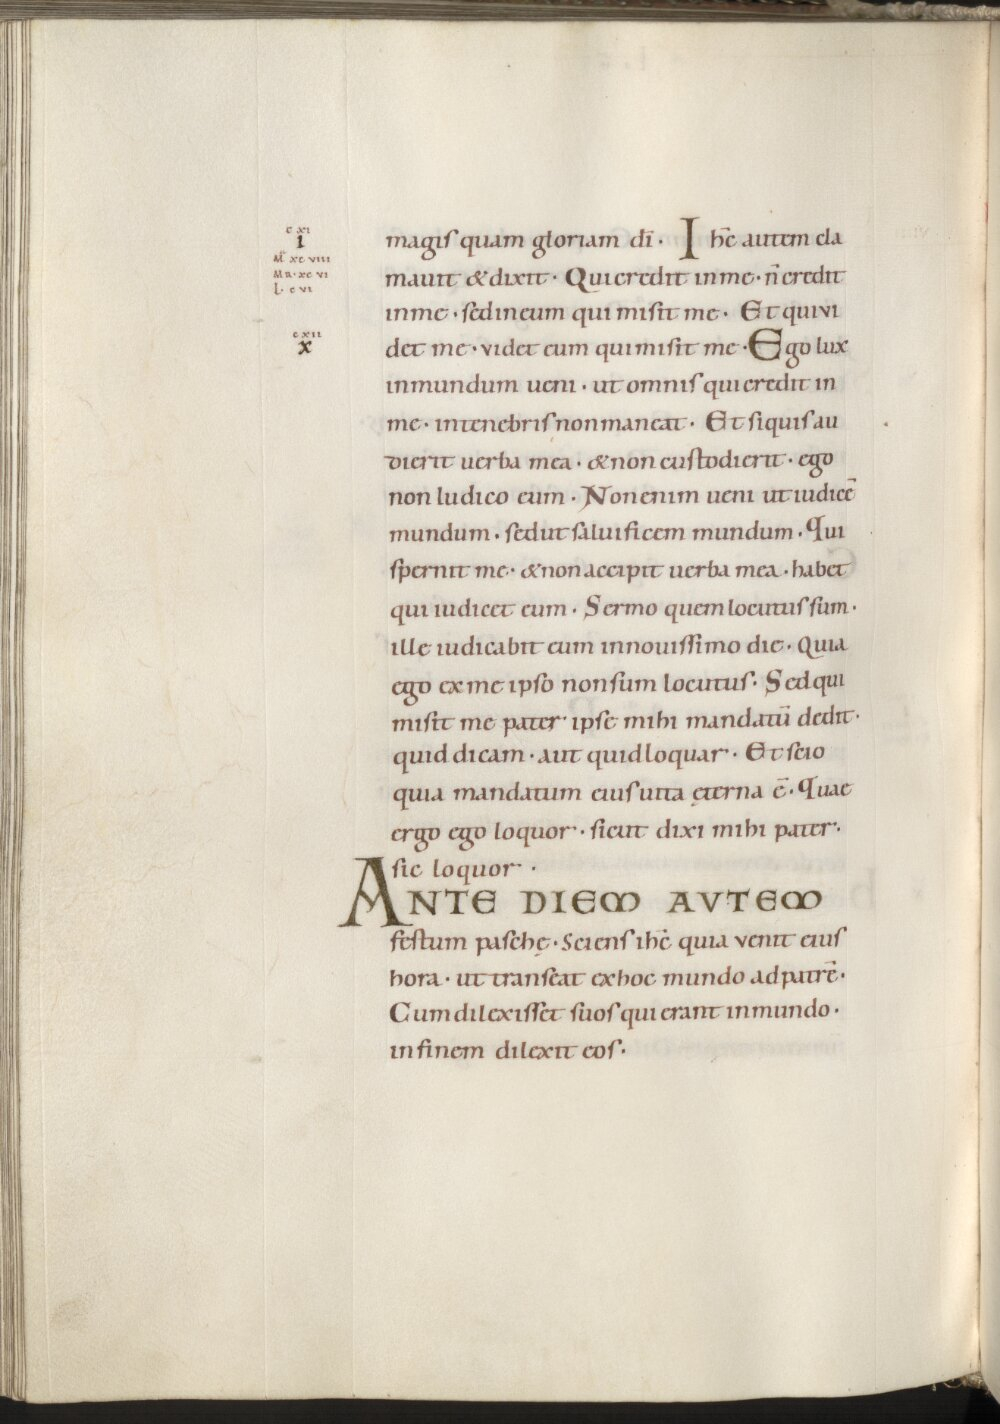 c xi
i
M̄ xc viii
MR · xc vi
L · c vi
c xii
x
magis quam gloriam dī · I hc̄ autem cla
mauit & dixit · Qui credit in me · n̄ credit
in me · sed in eum qui misit me · Et qui vi
det me · videt eum qui misit me · Ego lux
in mundum ueni · ut omnis qui credit in
me · in tenebris non maneat · Et si quis au
dierit uerba mea · & non custodierit · ego
non Iudico eum · Non enim ueni ut iudicē
mundum · sed ut saluificem mundum · Qui
spernit me · & non accipit uerba mea · habet
qui iudicet eum · Sermo quem locutus sum ·
ille iudicabit eum in nouissimo die · Quia
ego ex me ipso non sum locutus · Sed qui
misit me pater · ipse mihi mandatū dedit ·
quid dicam · aut quid loquar · Et scio
quia mandatum eius uita ęterna ē · Quae
ergo ego loquor · sicut dixi mihi pater ·
sic loquor ·
ANTE DIEM AVTEM
festum paschę · Sciens ihc̄ quia venit eius
hora · ut transeat ex hoc mundo ad patrē ·
Cum dilexisset suos qui erant in mundo ·
in finem dilexit eos ·